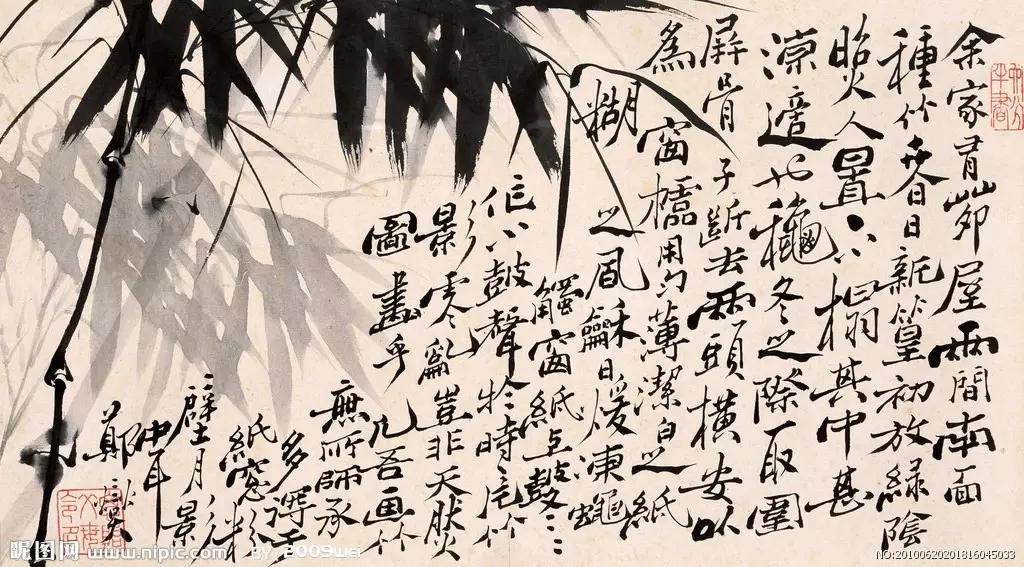 余家有茆屋兩間南面
種竹夏日新篁初放綠陰
照人置小榻其中甚
涼適也穐冬之際取圍
屏骨子斷去兩頭橫安以
為窗櫺用勻薄潔白之紙
糊之風龢日煖凍蠅
觸窗紙上鼕
作小鼓聲於時一片竹
景零亂豈非天然
圖畫乎凡吾画竹
無所師承
多得于
紙窓粉
壁月景
中耳
鄭燮
昵图网 www.nipic.com BY 2009wei
NO:20100620201816045033